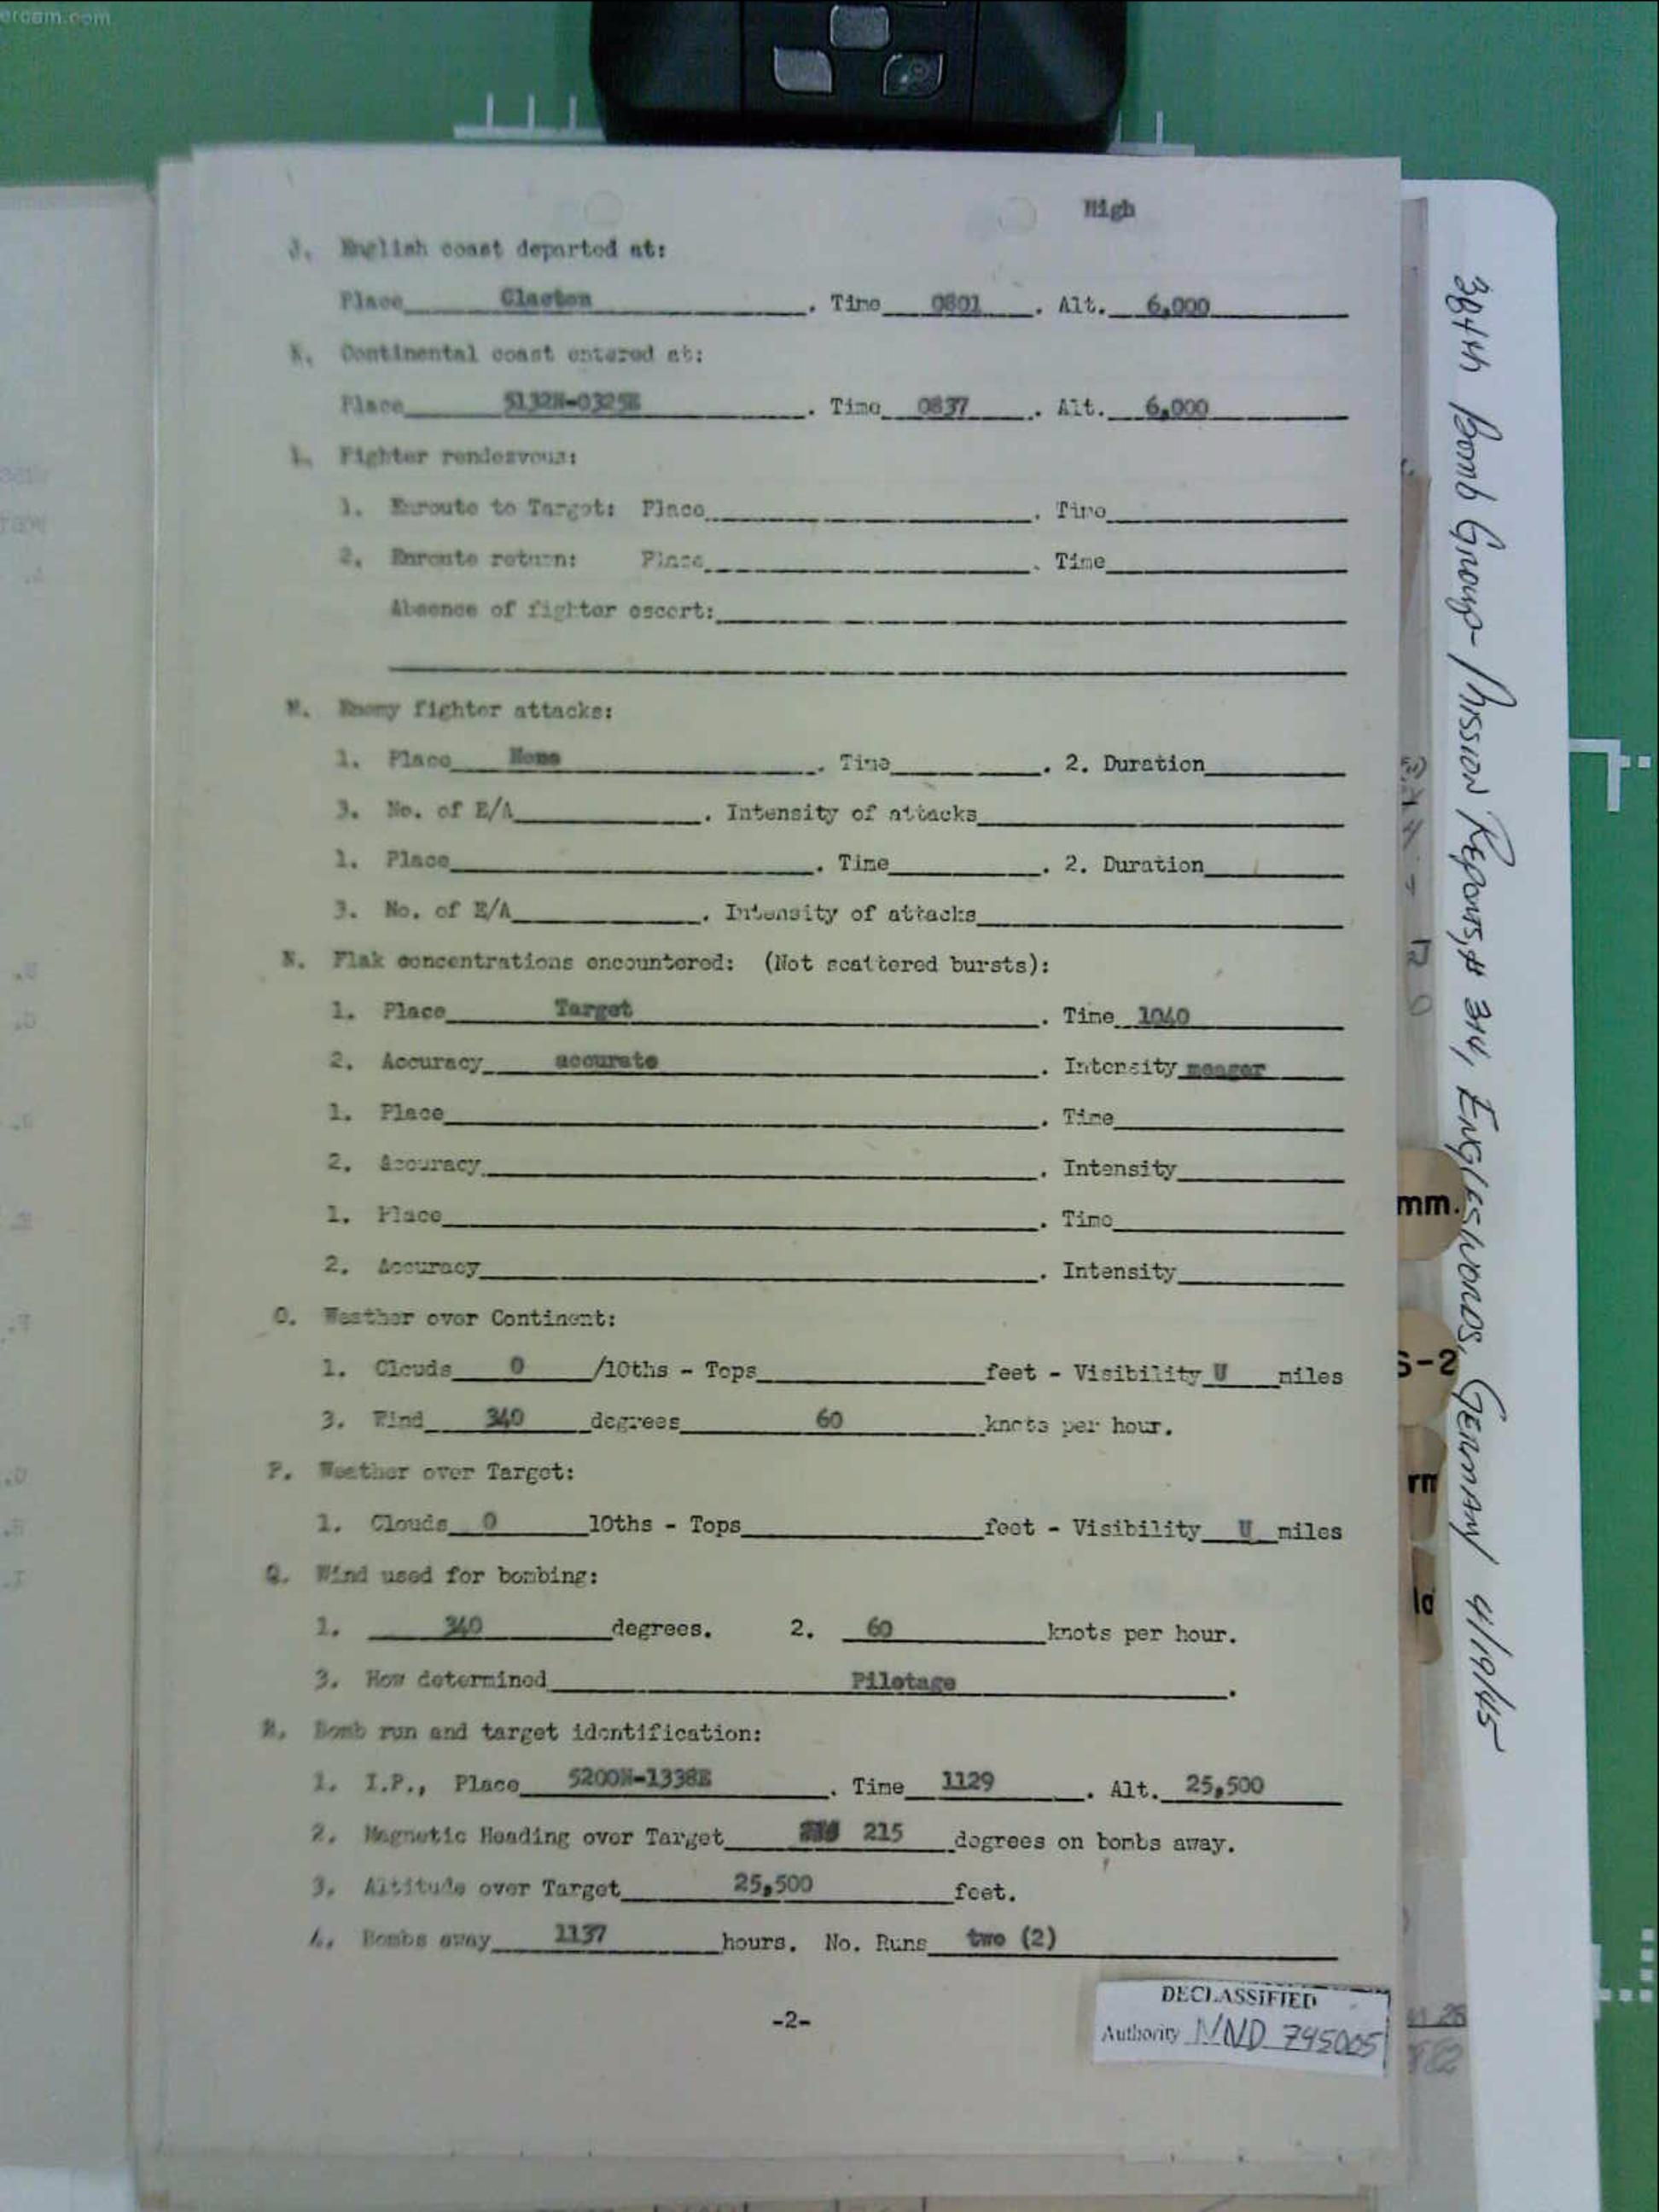 ercam.com
High
J. English coast departed at:
Place Clacton . Time 0801 . Alt. 6,000
K. Continental coast entered at:
Place 5132N-0325E . Time 0837 . Alt. 6,000
L. Fighter rendezvous:
1. Enroute to Target: Place . Time
2. Enroute return: Place . Time
Absence of fighter escort:
M. Enemy fighter attacks:
1. Place None . Time . 2. Duration
3. No. of E/A . Intensity of attacks
1. Place . Time . 2. Duration
3. No. of E/A . Intensity of attacks
N. Flak concentrations encountered: (Not scattered bursts):
1. Place Target . Time 1040
2. Accuracy accurate . Intensity meager
1. Place . Time
2. Accuracy . Intensity
1. Place . Time
2. Accuracy . Intensity
O. Weather over Continent:
1. Clouds 0 /10ths - Tops feet - Visibility U miles
3. Wind 340 degrees 60 knots per hour.
P. Weather over Target:
1. Clouds 0 10ths - Tops feet - Visibility U miles
Q. Wind used for bombing:
1. 340 degrees. 2. 60 knots per hour.
3. How determined Pilotage .
R. Bomb run and target identification:
1. I.P., Place 5200N-1338E . Time 1129 . Alt. 25,500
2. Magnetic Heading over Target 215 degrees on bombs away.
3. Altitude over Target 25,500 feet.
4. Bombs away 1137 hours. No. Runs two (2)
-2-
DECLASSIFIED
Authority NND 745005
384th Bomb Group - Mission Reports, # 314, Engleswords, Germany 4/19/45
mm.
S-2
rm
la